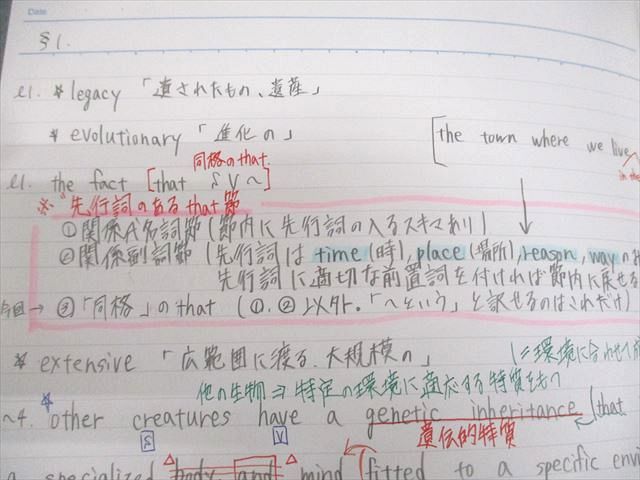 Date
§1.
l1. * legacy 「遺されたもの、遺産」
* evolutionary 「進化の」
[the town where we live
in the
同格のthat.
l1. the fact [that S V ~]
※ 先行詞のあるthat節
①関係代名詞節(節内に先行詞の入るスキマあり)
②関係副詞節(先行詞は time (時), place (場所), reason, way の
先行詞に適切な前置詞を付ければ節内に戻せる
今回→ ③「同格」のthat (①,②以外。「~という」と訳せるのはこれだけ)
* extensive 「広範囲に渡る、大規模の」
(=環境に合わせて
他の生物⇒特定の環境に適応する特質をもつ
~4. *other creatures have a genetic inheritance (that
S V 遺伝的特質
a specialized body and mind fitted to a specific envi